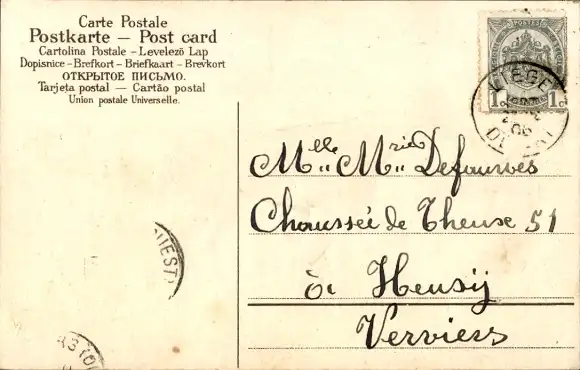 Carte Postale
Postkarte — Post card
Cartolina Postale - Levelező Lap
Dopisnice - Brefkort - Briefkaart - Brevkort
ОТКРЫТОЕ ПИСЬМО.
Tarjeta postal — Cartão postal
Union postale Universelle.
POSTES
1c 1c
LIEGE
06
Mlle Mrie Defourves
Chaussée de Theuse 51
à Heusÿ
Verviers